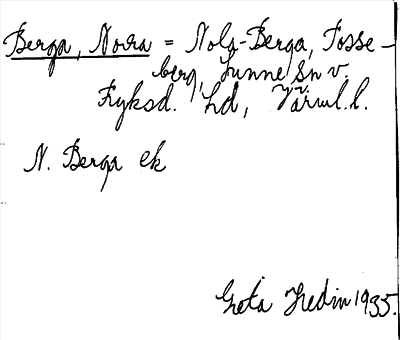 Berga, Norra = Nolg-Berga, Fosse-
berg, Sunne Sn v.
Fryksd. hd, Värml. l.
N. Berga ek
Greta Hedin 1935.